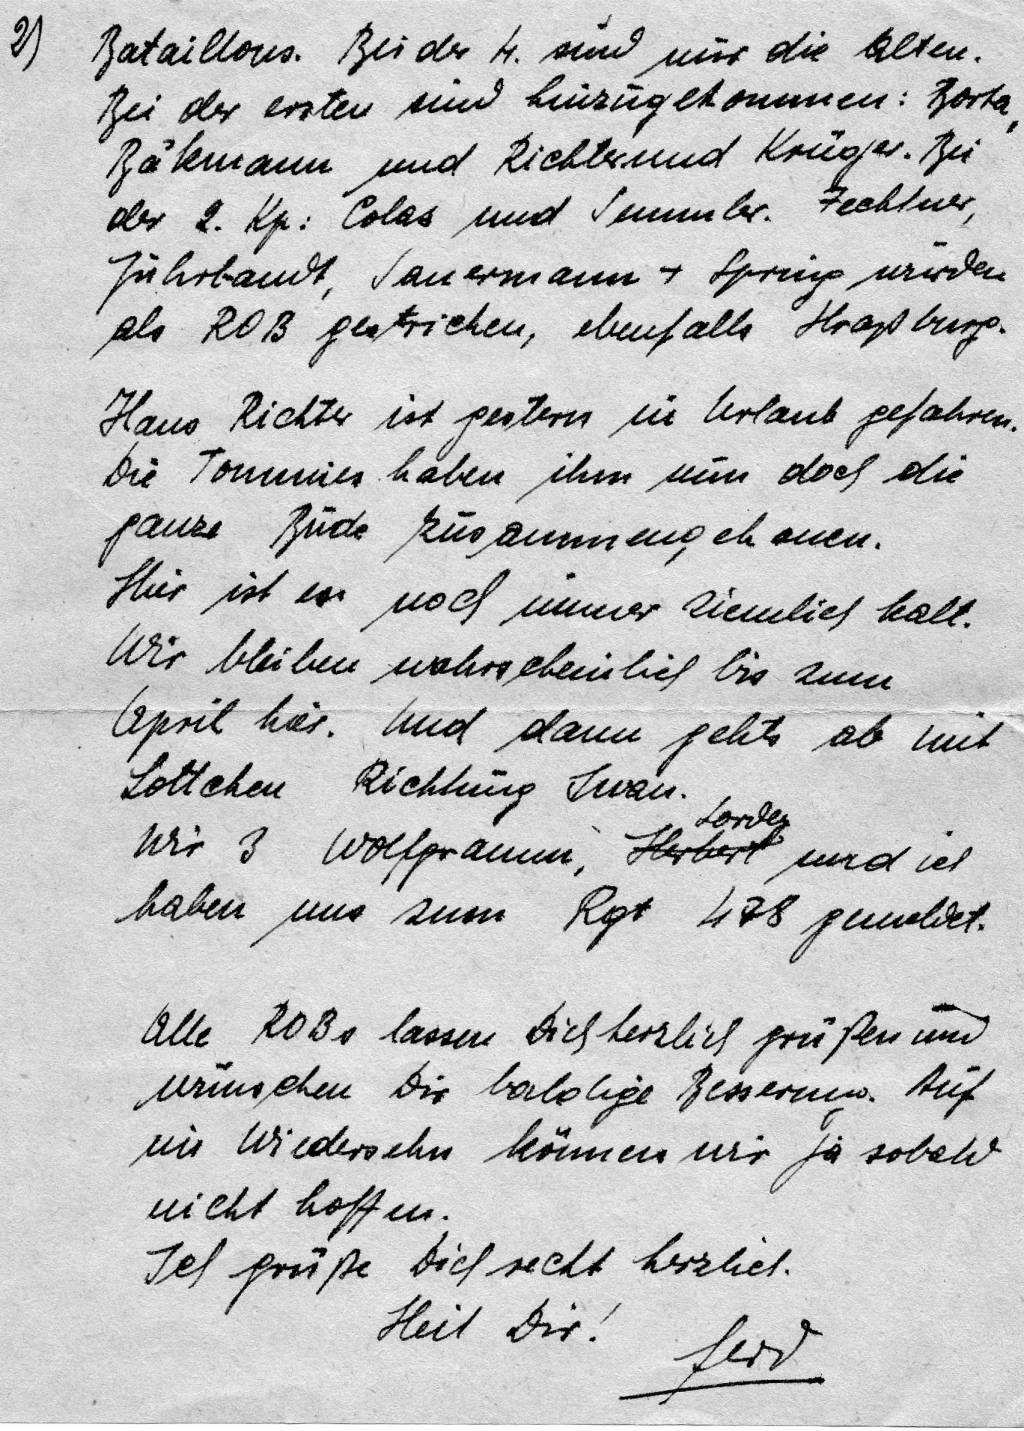 2)
Bataillons. Bei der 4. sind nur die Alten.
Bei der ersten sind hinzugekommen: Borta,
Bäkmann und Richter und Krüger. Bei
der 2. Kp: Colas und Semmler. Fechtner,
Führbandt, Sauermann + Spring würden
als ROB gestrichen, ebenfalls
Hans Richter ist gestern in Urlaub gefahren.
Die Tommies haben ihm nun doch die
ganze Bude zusammengehauen.
Hier ist es noch immer ziemlich kalt.
Wir bleiben wahrscheinlich bis zum
April hier. Und dann gehts ab mit
Lottchen Richtung Iwan.
Lorder
Wir 3 Wolfgramm, Herbert und ich
haben uns zum Rgt 478 gemeldet.
Alle ROBs lassen Dich herzlich grüßen und
wünschen Dir baldige Besserung. Auf
ein Wiedersehn können wir ja sobald
nicht hoffen.
Ich grüße Dich recht herzlich.
Heil Dir!
Gerd